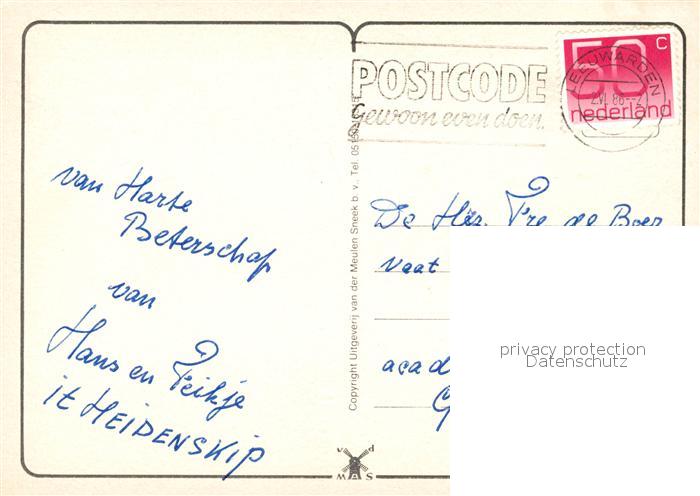 van Harte
Beterschap
van
Hans en Feikje
it HEIDENSKIP
Copyright Uitgeverij van der Meulen Sneek b. v. Tel.
POSTCODE
Gewoon even doen.
LEEUWARDEN
50 c
nederland
De Hr. de Boer
Vaat
acad
G
privacy protection
Datenschutz
v d
MAS